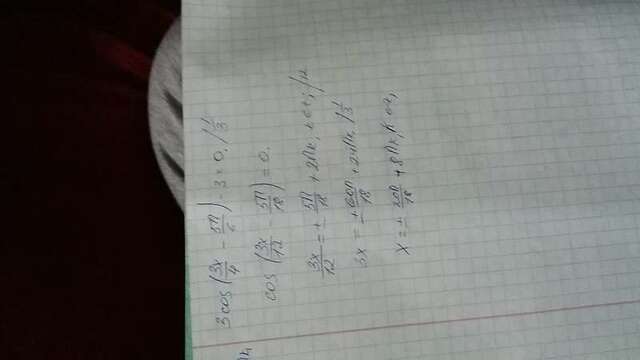 3cos(3x/4 - 5π/6) - 3 = 0. /1/3
cos(3x/12 - 5π/18) = 0.
3x/12 = ± 5π/18 + 2πk, k ∈ z; /12
3x = ±60π/18 + 24πk, /1/3
x = ± 20π/18 + 8πk, k ∈ z,